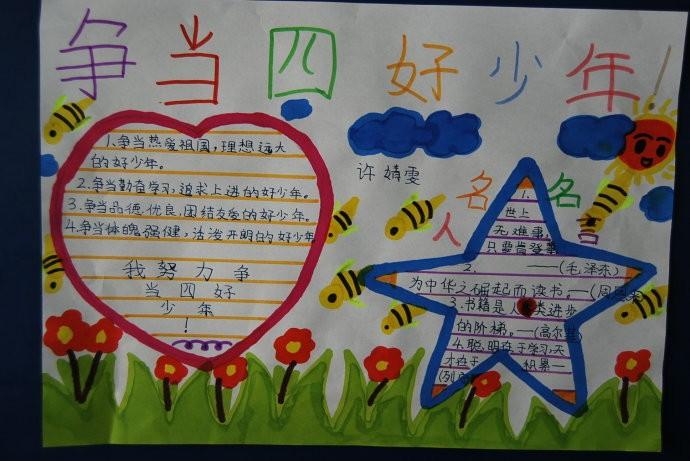 争当四好少年!
1.争当热爱祖国,理想远大
的好少年。
2.争当勤奋学习,追求上进的好少年。
3.争当品德优良,团结友爱的好少年。
4.争当体魄强健,活泼开明的好少年
我努力争
当四好
少年
!
许婧雯
名人名言
1.
世上
无难事,
只要肯登
2. ——(毛泽东)
为中华之崛起而读书。—(周恩
3.书籍是人类进步
的阶梯。—(高尔
4.聪明在于学习,天
才在于 积累—
(列